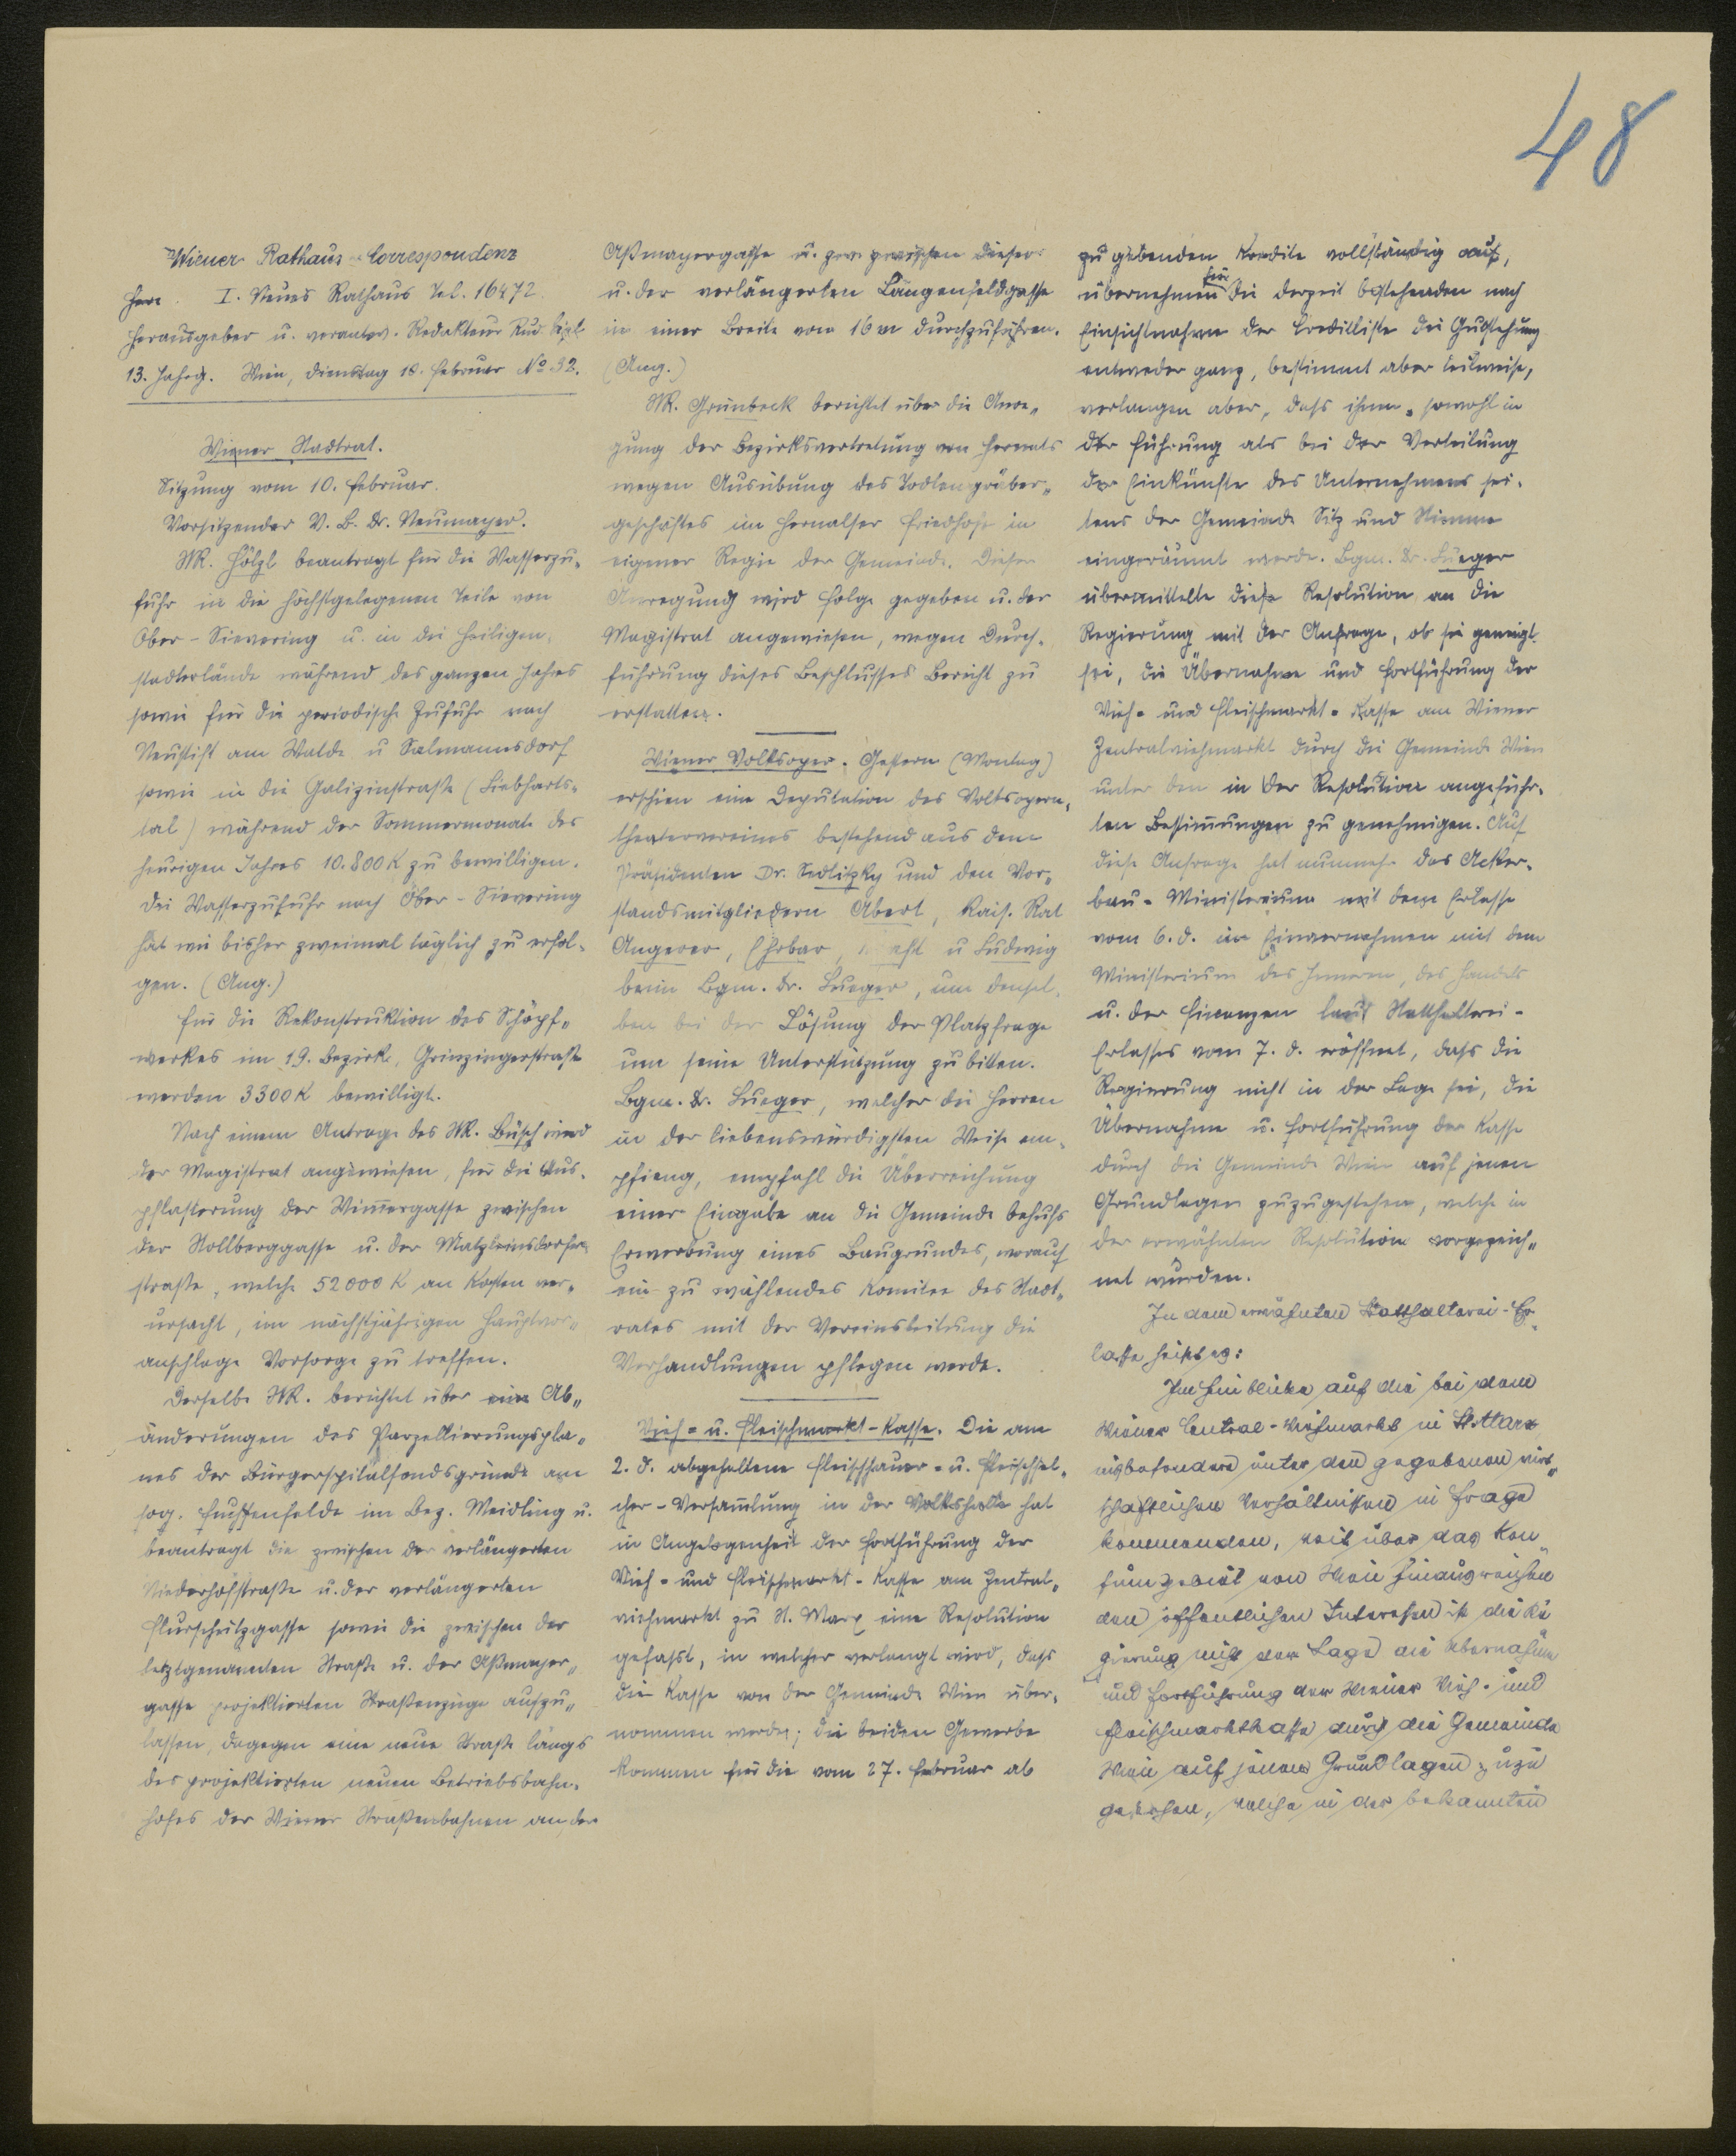 48
Wiener Rathaus-Correspondenz
I. Neues Rathaus Tel. 16472.
Herausgeber u. verantw. Redakteur Rud.
13. Jahrg. Wien, Dienstag 10. Februar No 32.
Wiener Stadtrat.
Sitzung vom 10. Februar.
Vorsitzender V. B. Dr. Neumayer.
StR. Hölzl beantragt für die Wasserzu-
fuhr in die höchstgelegenen Teile von
Ober-Sievering u. in die Heiligen-
städterlände während des ganzen Jahres
sowie für die periodische Zufuhr nach
Neustift am Walde u Salmannsdorf
sowie in die Galizinstraße (Liebharts-
tal) während der Sommermonate des
heurigen Jahres 10.800 K zu bewilligen.
Die Wasserzufuhr nach Ober-Sievering
hat wie bisher zweimal täglich zu erfol-
gen. (Ang.)
Für die Rekonstruktion des Schöpf-
werkes im 19. Bezirk, Grinzingerstraße
werden 3300 K bewilligt.
Nach einem Antrage des StR. Büsch wird
der Magistrat angewiesen, für die Aus-
pflasterung der Wimmergasse zwischen
der Stollberggasse u. der Matzleinsdorfer-
straße, welche 52000 K an Kosten ver-
ursacht, im nächstjährigen Hauptvor-
anschlage Vorsorge zu treffen.
Derselbe StR. berichtet über eine Ab-
änderungen des Parzellierungspla-
nes der Bürgerspitalfondsgründe am
sog. Fuchsenfelde im Bez. Meidling u.
beantragt die zwischen der verlängerten
Niederhofstraße u. der verlängerten
Flurschützgasse sowie die zwischen der
letztgenannten Straße u. der Aßmayer-
gasse projektierten Straßenzüge aufzu-
lassen, dagegen eine neue Straße längs
des projektierten neuen Betriebsbahn-
hofes der Wiener Straßenbahnen an der
Aßmayergasse u. zwischen dieser
u. der verlängerten Längenfeldgasse
in einer Breite von 16 m durchzuführen.
(Ang.)
StR. Grünbeck berichtet über die Anre-
gung der Bezirksvertretung von Hernals
wegen Ausübung des Todtengräber-
geschäftes im Hernalser Friedhofe in
eigener Regie der Gemeinde. Dieser
Anregung wird Folge gegeben u. der
Magistrat angewiesen, wegen Durch-
führung dieses Beschlusses Bericht zu
erstatten.
Wiener Volksoper. Gestern (Montag)
erschien eine Deputation des Volksopern-
theatervereines bestehend aus dem
Präsidenten Dr. Sedlitzky und den Vor-
standsmitgliedern Abert, Kais. Rat
Angerer, Ehrbar, u Ludwig
beim Bgm. Dr. Lueger, um densel-
ben bei der Lösung der Platzfrage
um seine Unterstützung zu bitten.
Bgm. Dr. Lueger, welcher die Herren
in der liebenswürdigsten Weise em-
pfieng, empfahl die Überreichung
einer Eingabe an die Gemeinde behufs
Erwerbung eines Baugrundes, worauf
ein zu wählendes Komitee des Stadt-
rates mit der Vereinsleitung die
Verhandlungen pflegen werde.
Vieh- u. Fleischmarkt-Kasse. Die am
2. d. abgehaltene Fleischhauer- u. Fleischsel-
cher-Versammlung in der Volkshalle hat
in Angelegenheit der Fortführung der
Vieh- und Fleischmarkt-Kasse am Zentral-
viehmarkt zu St. Marx eine Resolution
gefasst, in welcher verlangt wird, dass
die Kasse von der Gemeinde Wien über-
nommen werde; die beiden Gewerbe
kommen für die vom 27. Februar ab
zu gebenden Kredite vollständig auf,
übernehmen für die derzeit bestehenden nach
Einsichtnahme der Creditliste die Gutstehung
entweder ganz, bestimmt aber teilweise,
verlangen aber, dass ihnen sowohl in
der Führung als bei der Verteilung
der Einkünfte des Unternehmens sei-
tens der Gemeinde Sitz und Stimme
eingeräumt werde. Bgm. Dr. Lueger
übermittelte diese Resolution an die
Regierung mit der Anfrage, ob sie geneigt
sei, die Übernahme und Fortführung der
Vieh- und Fleischmarkt-Kasse am Wiener
Zentralviehmarkt durch die Gemeinde Wien
unter den in der Resolution angeführ-
ten Bestimmungen zu genehmigen. Auf
diese Anfrage hat nunmehr das Acker-
bau-Ministerium mit dem Erlasse
vom 6. d. im Einvernehmen mit dem
Ministerium des Innern, des Handels
u. der Finanzen laut Statthalterei-
Erlasses vom 7. d. eröffnet, dass die
Regierung nicht in der Lage sei, die
Übernahme u. Fortführung der Kasse
durch die Gemeinde Wien auf jenen
Grundlagen zuzugestehen, welche in
der erwähnten Resolution vorgezeich-
net wurden.
In dem erwähnten Statthalterei-Er-
lasse heißt es:
Im Hinblicke auf die bei dem
Wiener Central-Viehmarkt in St. Marx
insbesondere unter den gegebenen wirt-
schaftlichen Verhältnissen in Frage
kommenden, weit über das Kon-
sumgebiet von Wien hinausreichen
den öffentlichen Interessen ist die Re
gierung nicht in der Lage die Übernahme
und Fortführung der Wiener Vieh- und
Fleischmarktkasse durch die Gemeinde
Wien auf jenen Grundlagen zuzu
gestehen, welche in der bekannten